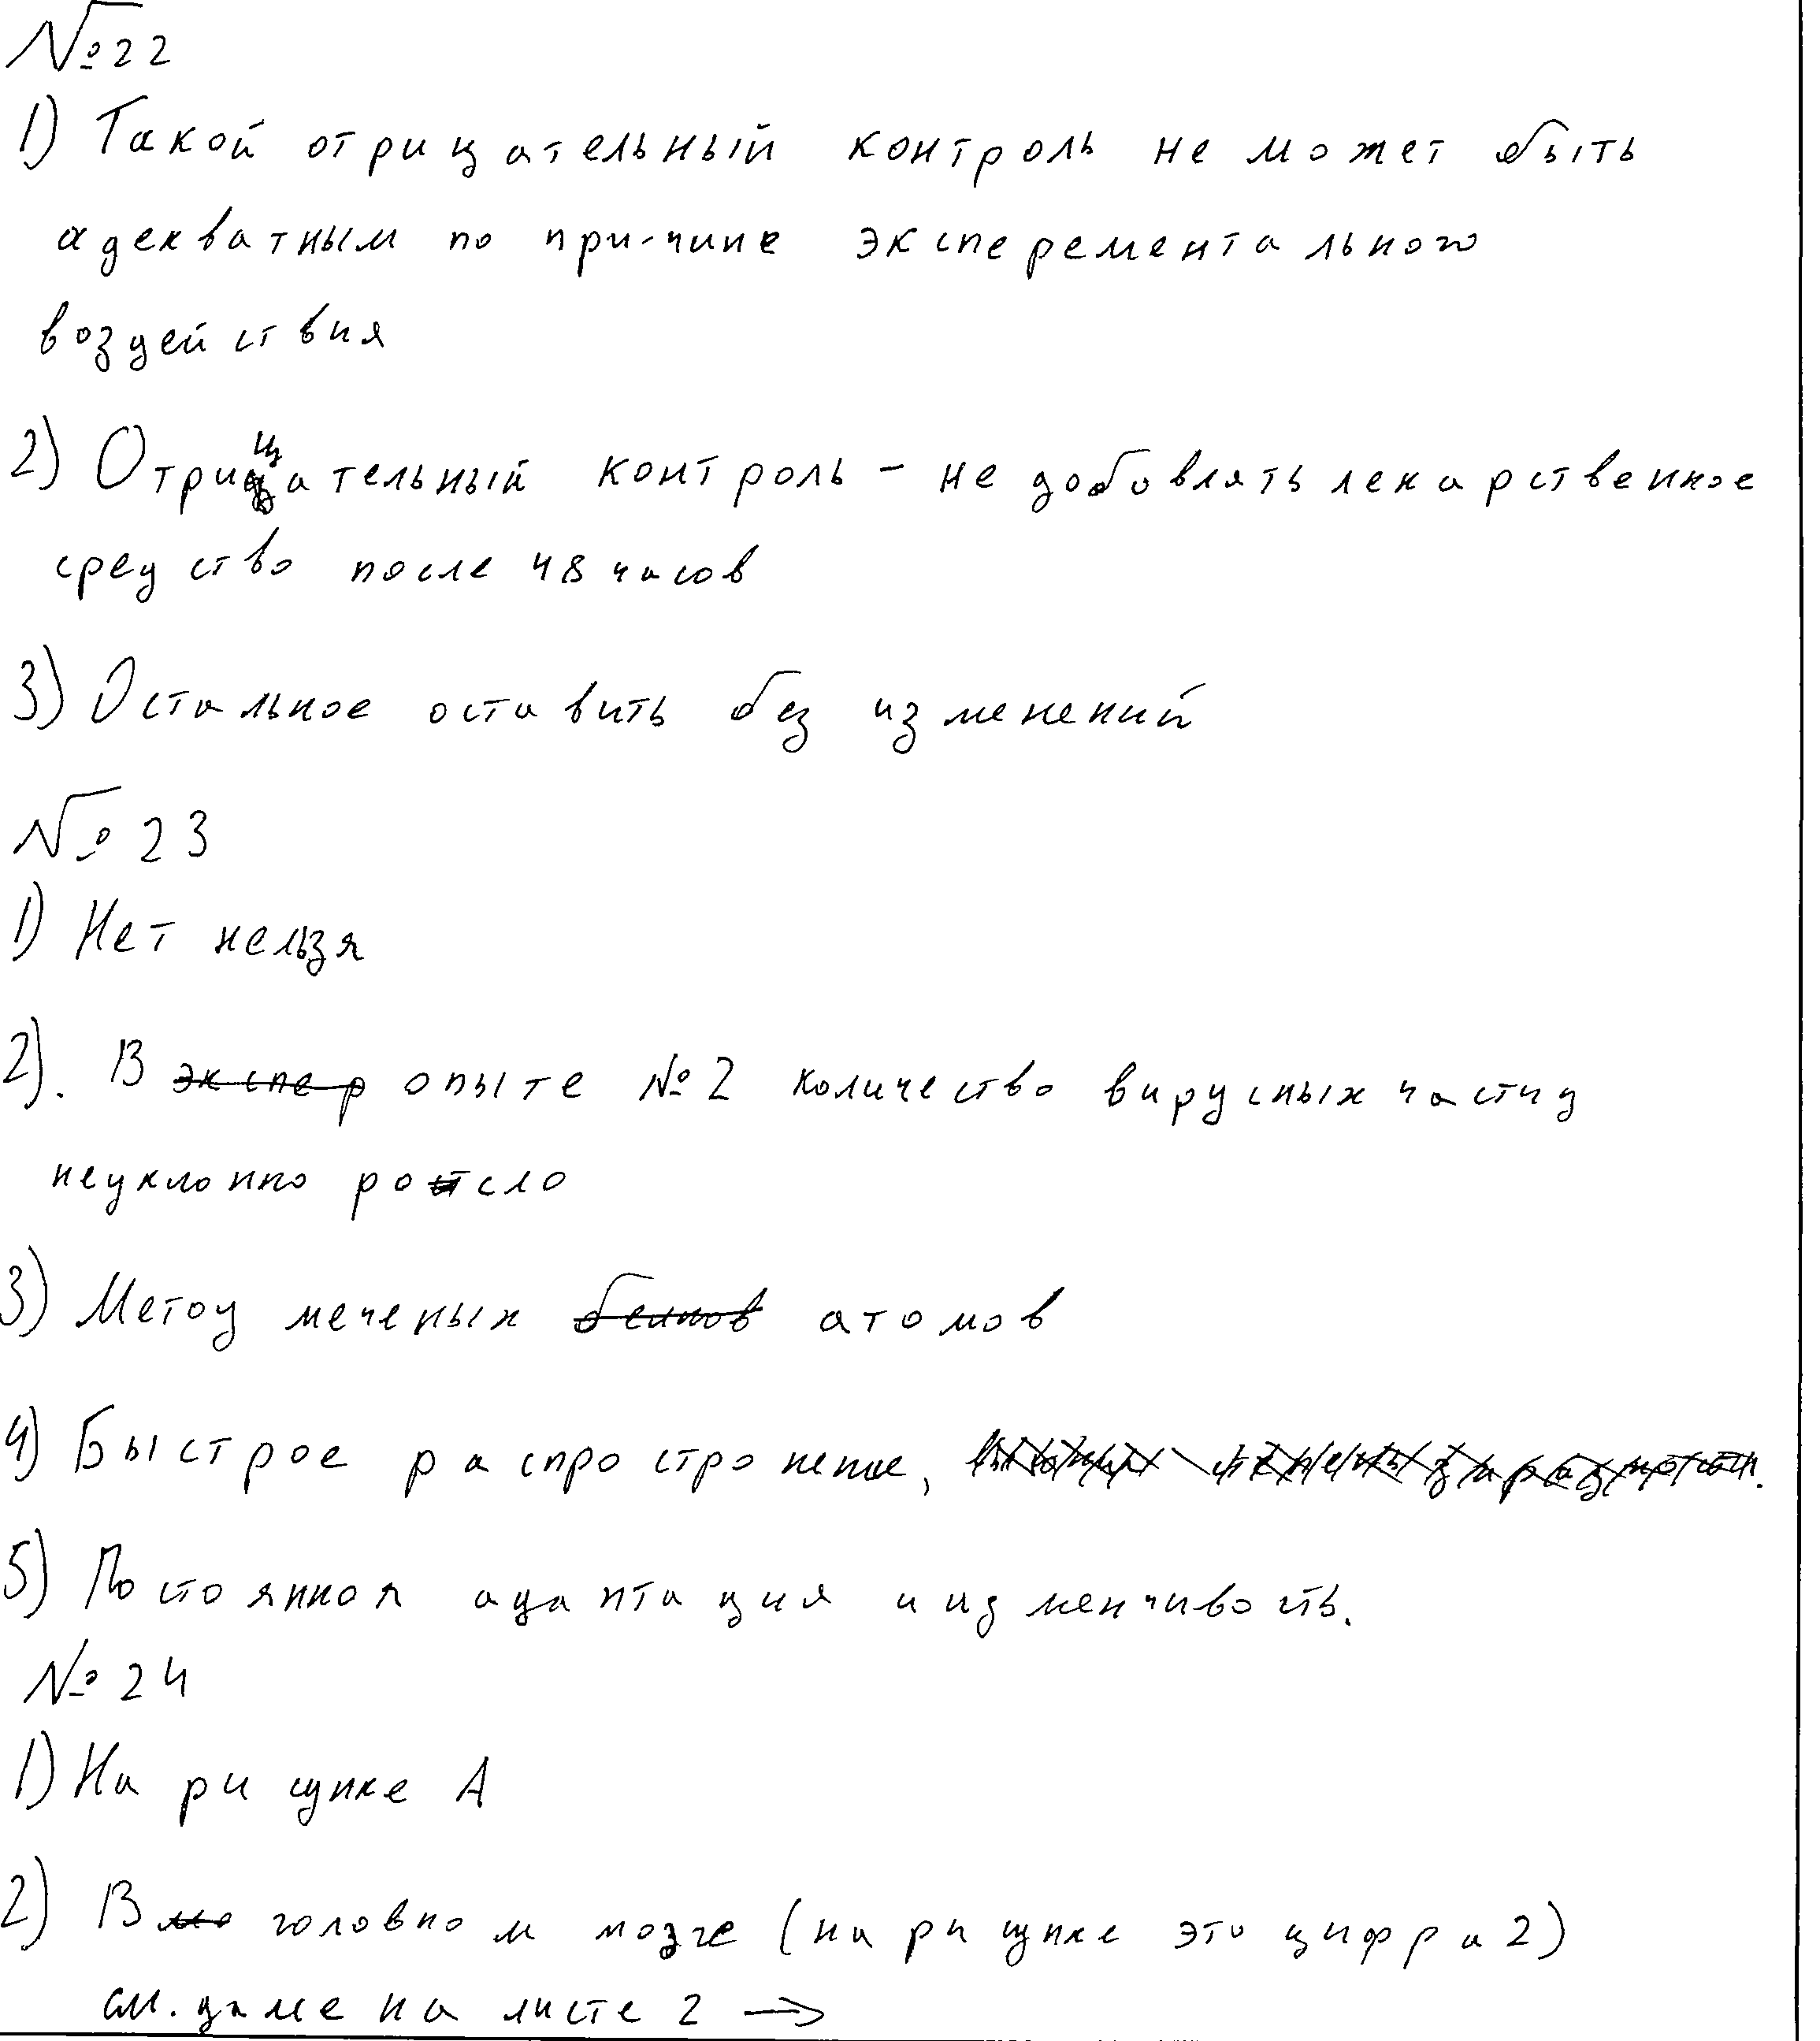 №22
1) Такой отрицательный контроль не может быть
адекватным по причине эксперементального
воздействия
2) Отрицательный контроль - не добовлять лекарственное
средство после 48 часов
3) Остальное оставить без изменений
№ 23
1) Нет нельзя
2). В экспер опыте №2 количество вирусных частиц
неуклонно росло
3) Метод меченых белков атомов
4) Быстрое распространение,
5) Постоянная адаптация и изменчивость.
№ 24
1) На рисунке А
2) В головном мозге (на рисунке это цифра 2)
см. далее на листе 2 →